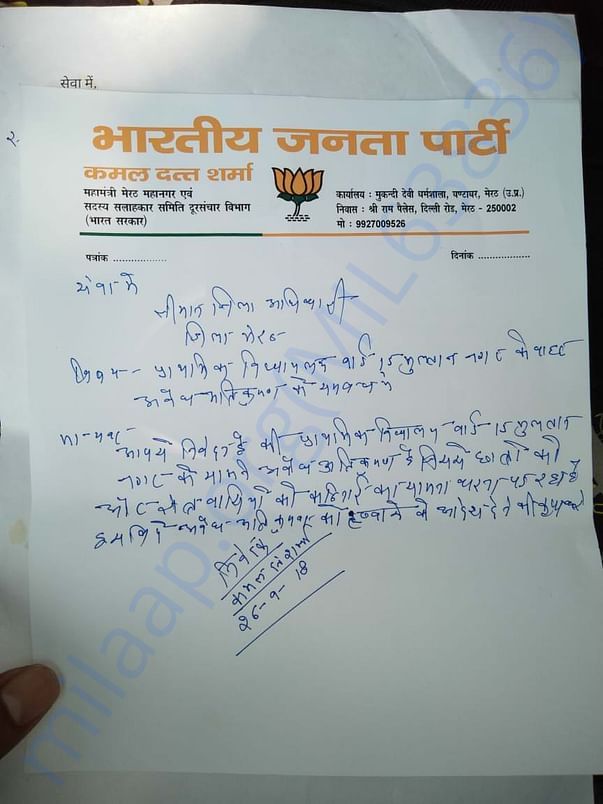 सेवा में,
२.
भारतीय जनता पार्टी
कमल दत्त शर्मा
महामंत्री मेरठ महानगर एवं
सदस्य सलाहकार समिति दूरसंचार विभाग
(भारत सरकार)
कार्यालय : मुकन्दी देवी धर्मशाला, घण्टाघर, मेरठ (उ.प्र.)
निवास : श्री राम पैलेस, दिल्ली रोड, मेरठ - 250002
मो : 9927009526
पत्रांक ..................
दिनांक ..................
सेवा में
श्रीमान जिला अधिकारी
जिला मेरठ
विषय - प्राथमिक विद्यालय वार्ड मुल्तान नगर के बाहर
अवैध अतिक्रमण के सम्बन्ध में
मान्यवर
आपसे निवेदन है की प्राथमिक विद्यालय वार्ड मुल्तान
नगर के सामने अवैध अतिक्रमण है जिससे छात्रों को
और वासियों को कठिनाई का सामना करना पड रहा है
इसलिये अवैध अतिक्रमण को हटवाने के आदेश देने की कृपा करे
निवेदक
कमल दत्त शर्मा
26-9-18
milaap.org(MIL63836)